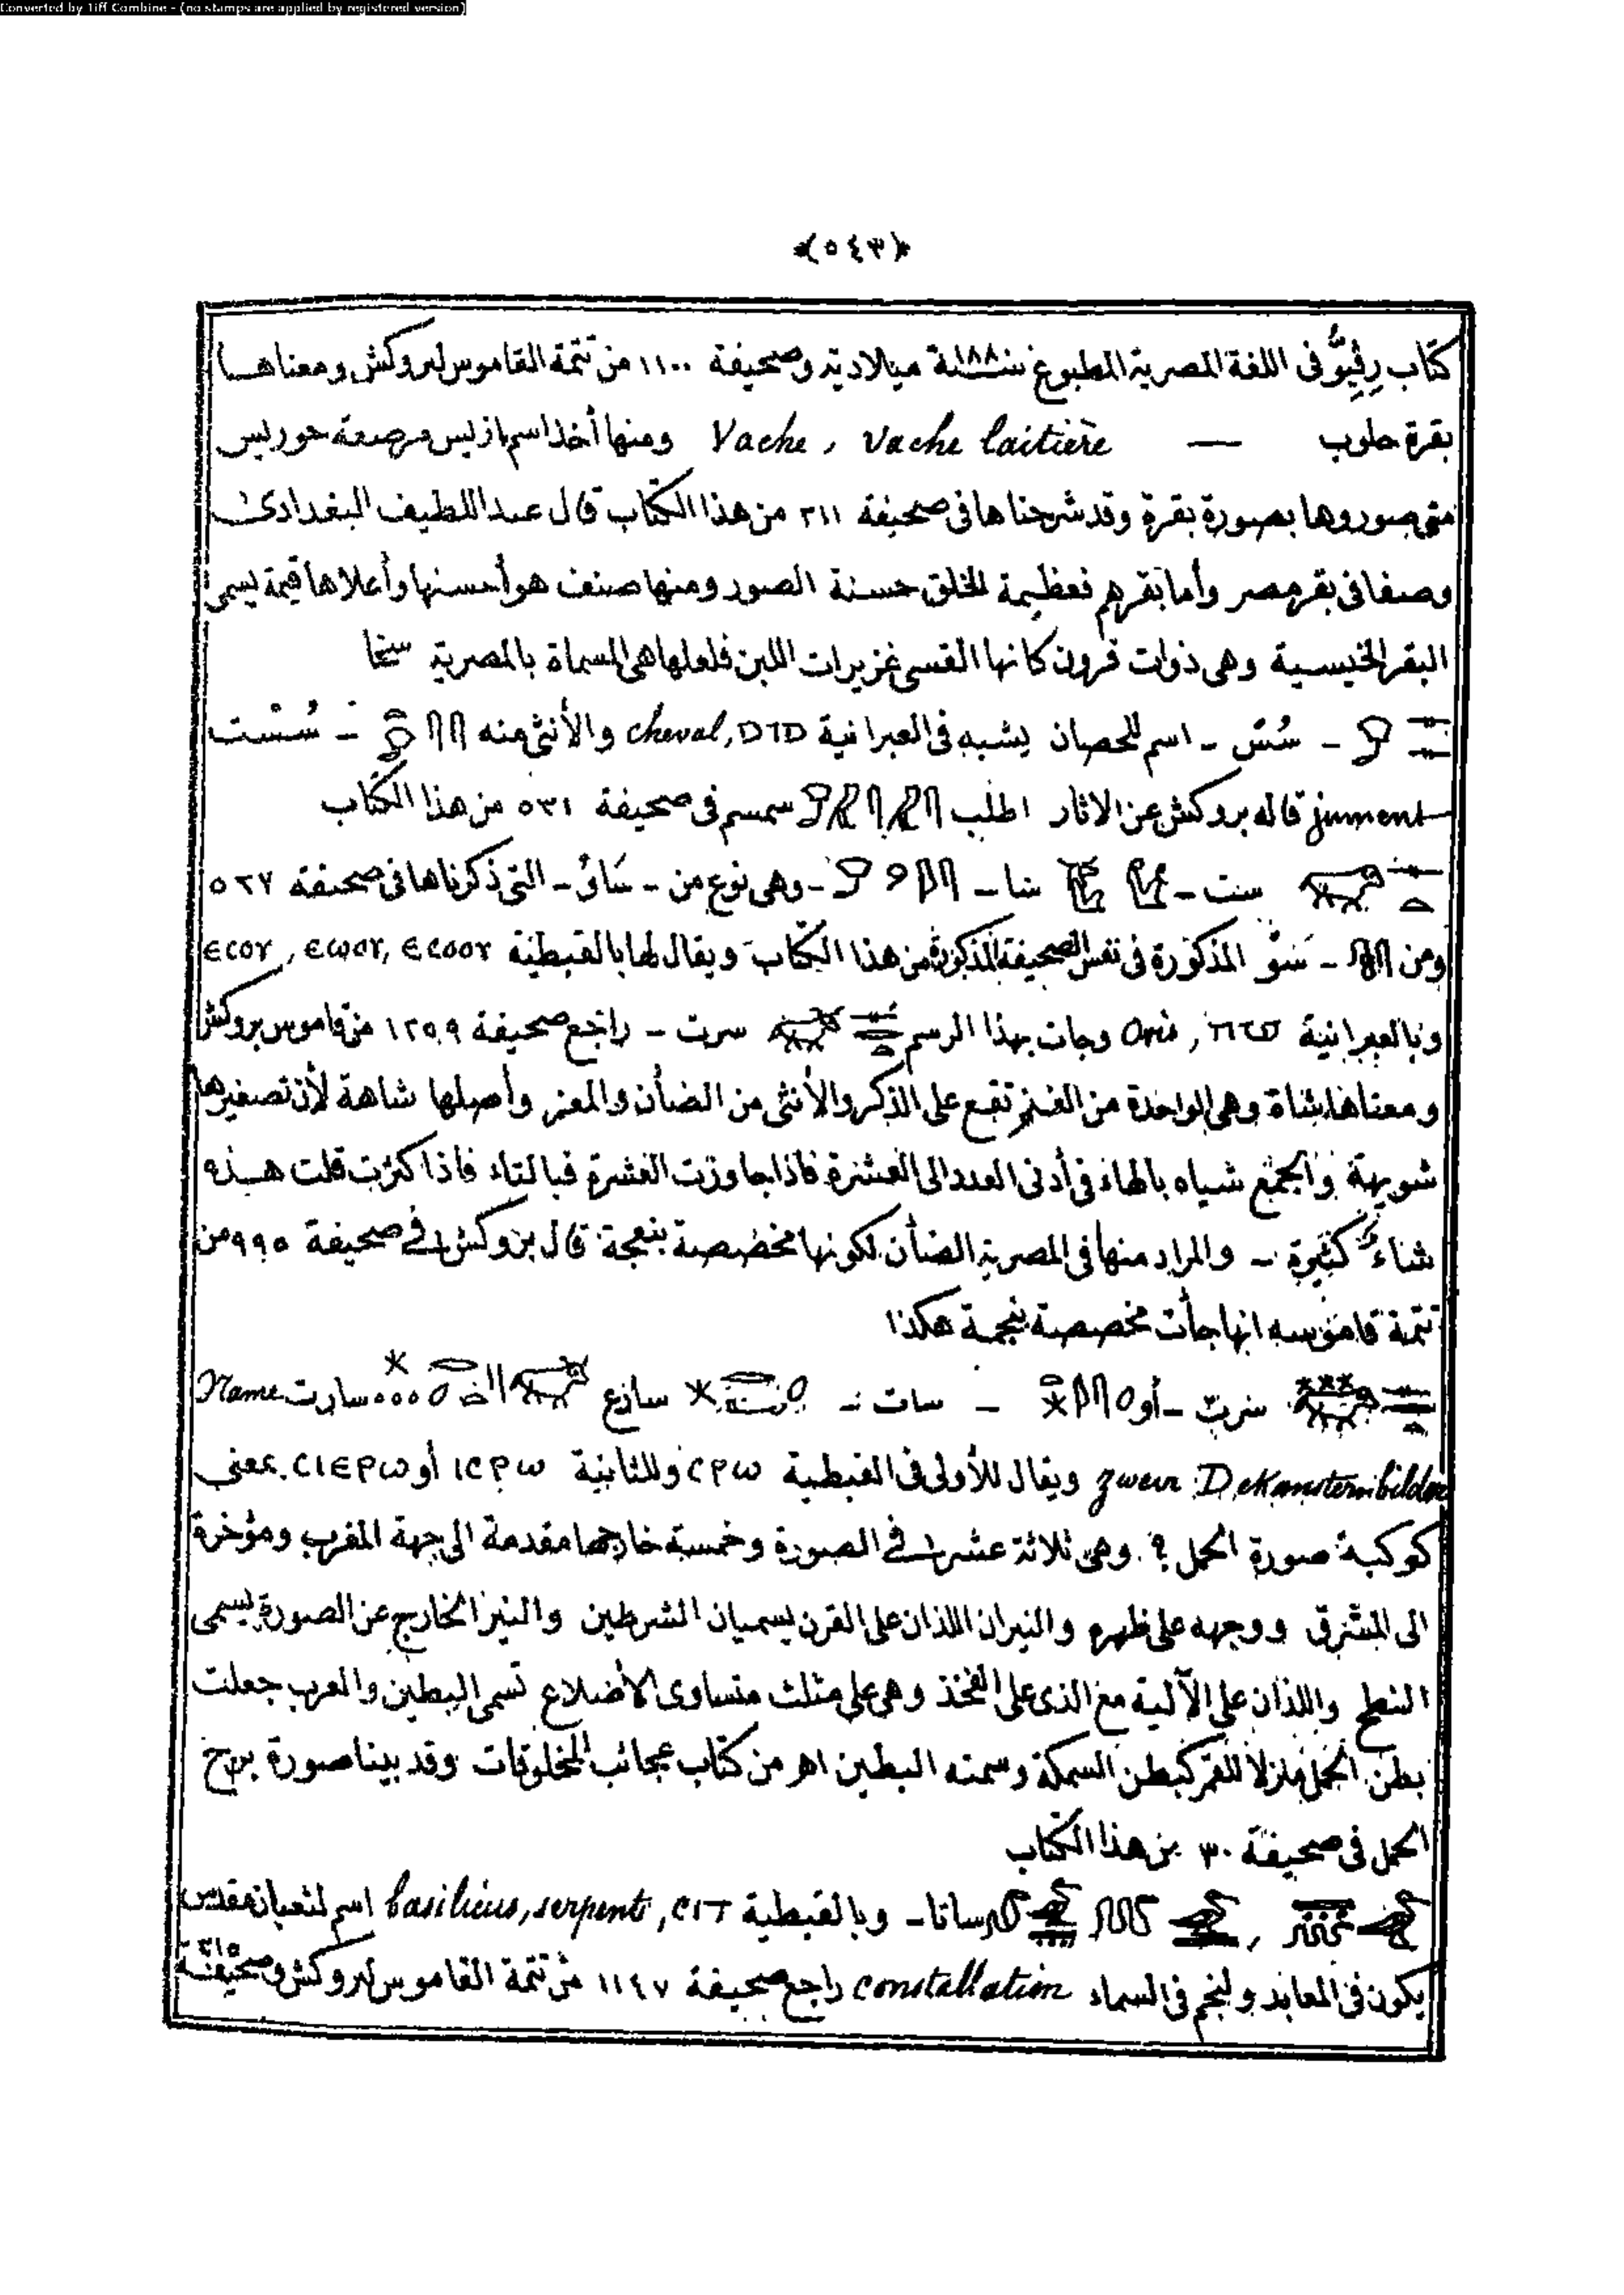 Converted by Tiff Combine - (no stamps are applied by registered version)
﴿٥٤٣﴾
كتاب رڤيو فى اللغة المصرية المطبوع سنة ميلادية وصحيفة ١١٠٠ من تتمة القاموس لبروكش ومعناها
بقرة حلوب — Vache, vache laitière ومنها أخذ اسم ازليس مرضعة حوريس
متى صوروها بصورة بقرة وقد شرحناها فى صحيفة ٣١١ من هذا الكتاب قال عبد اللطيف البغدادى
وصفا فى بقر مصر وأما بقرهم فعظيمة الخلق حسنة الصور ومنها صنف هو أحسنها وأعلاها قيمة يسمى
البقر الخيسية وهى ذوات قرون كانها القسى غزيرات اللبن فلعلها هى المسماة بالمصرية سخا
ـ سُسْ ـ اسم للحصان يشبه فى العبرانية סוס ,cheval والأنثى منه ـ سُسْت
jument قاله بروكش عن الاثار اطلب سمسم فى صحيفة ٥٣١ من هذا الكتاب
ست ـ شا ـ ـ وهى نوع من ـ سَاوُ ـ التى ذكرناها فى صحيفة ٥٢٧
ومن ـ سَوُّ المذكورة فى نفس الصحيفة المذكورة من هذا الكتاب ويقال لها بالقبطية ⲉⲥⲟⲩ , ⲉⲥⲱⲟⲩ, ⲉⲥⲟⲟⲩ
وبالعبرانية , Ovis وجات بهذا الرسم سرت ـ راجع صحيفة ١٢٩٩ من قاموس بروكش
ومعناها شاة وهى الواحدة من الغنم تقع على الذكر والأنثى من الضأن والمعز وأصلها شاهة لأن تصغيرها
شويهة والجمع شياه بالهاء فى أدنى العدد الى العشرة فاذا جاوزت العشرة فبالتاء فاذا كثرت قلت هذه
شاء كثيرة ـ والمراد منها فى المصرية الضأن لكونها مخصصة بنعجة قال بروكش فى صحيفة ٩٩٥ من
تتمة قاموسه انها جأت مخصصة بنجمة هكذا
سرت ـ أو ـ سات ـ سارع الخ سارت Name
zweir Dekansternbilder ويقال للأولى فى القبطية ⲥⲣⲱ وللثانية ⲓⲥⲣⲱ أو ⲥⲓⲉⲣⲱ بمعنى
كوكبة صورة الحمل ؟ وهى ثلاثة عشر فى الصورة وخمسة خارجها مقدمة الى جهة المغرب ومؤخرة
الى المشرق ووجهه على ظهره والنيران اللذان على القرن يسميان الشرطين والنير الخارج عن الصورة يسمى
النطح واللذان على الآلية مع الذى على الفخذ وهى على مثلث متساوى الأضلاع تسمى البطين والعرب جعلت
بطن الحمل منزلا للقمر كبطن السمكة وسمته البطين اهـ من كتاب عجائب المخلوقات وقد بينا صورة برج
الحمل فى صحيفة ٣٠ من هذا الكتاب
ساتا ـ وبالقبطية ⲥⲓⲧ, basilicus, serpent اسم لثعبان مقدس
يكون فى المعابد ولنجم فى السماء constallation راجع صحيفة ١١٤٧ من تتمة القاموس لبروكش وصحيفة ٣١٥